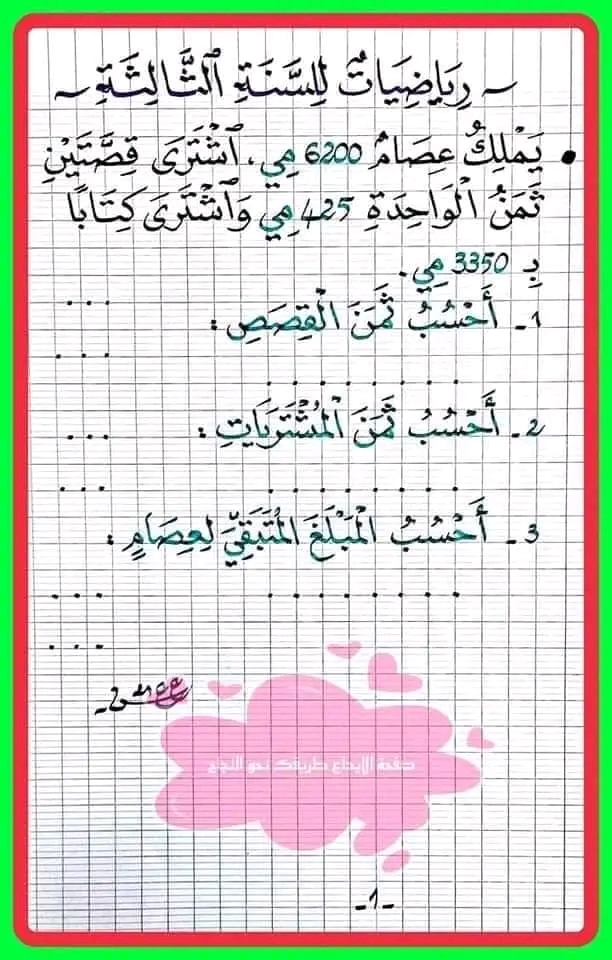 ~ رِيَاضِيَاتٌ لِلسَّنَةِ ٱلثَّالِثَةِ ~
• يَمْلِكُ عِصَامٌ 6200 مِي، ٱشْتَرَى قِصَّتَيْنِ
ثَمَنُ ٱلْوَاحِدَةِ 425 مِي وَٱشْتَرَى كِتَابًا
بِـ 3350 مِي.
1 - أَحْسُبُ ثَمَنَ الْقِصَصِ : ...
...
........
2 - أَحْسُبُ ثَمَنَ الْمُشْتَرَيَاتِ : ...
........ ...
3 - أَحْسُبُ الْمَبْلَغَ الْمُتَبَقِّيَ لِعِصَامٍ :
........ ...
...
صفحة الإبداع طريقك نحو النجاح
-1-